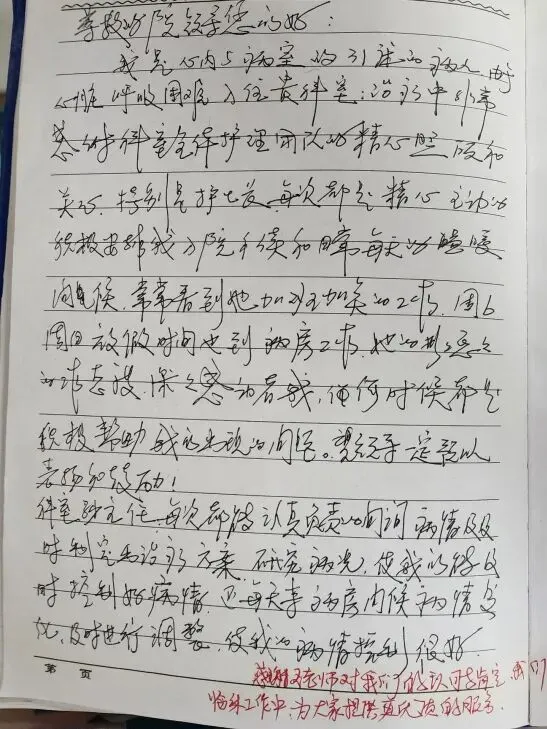 尊敬的医院领导您们好：
我是心内5病室的引流的病人，由于
心脏呼吸困难入住贵科室；治疗中非常
感谢科室全体护理团队的精心照顾和
关心，特别是护士长，每次都是精心主动的
积极安排我入院手续和日常每天的嘘寒
问候，常常看到她加班加点的工作，周6
周日放假时间也到病房工作，她的
工作态度，深深感动着我，任何时候都是
积极帮助我出现的问题。望领导一定予以
表扬和鼓励！
科室主任，每次都能认真负责的问询病情及
时制定出治疗方案，研究病况，使我的能及
时控制好病情，还每天来病房问候病情变
化，及时进行调整，使我的病情控制很好
第 页
感谢老师对我们的认可与肯定，我们
临床工作中，为大家提供更优质的服务